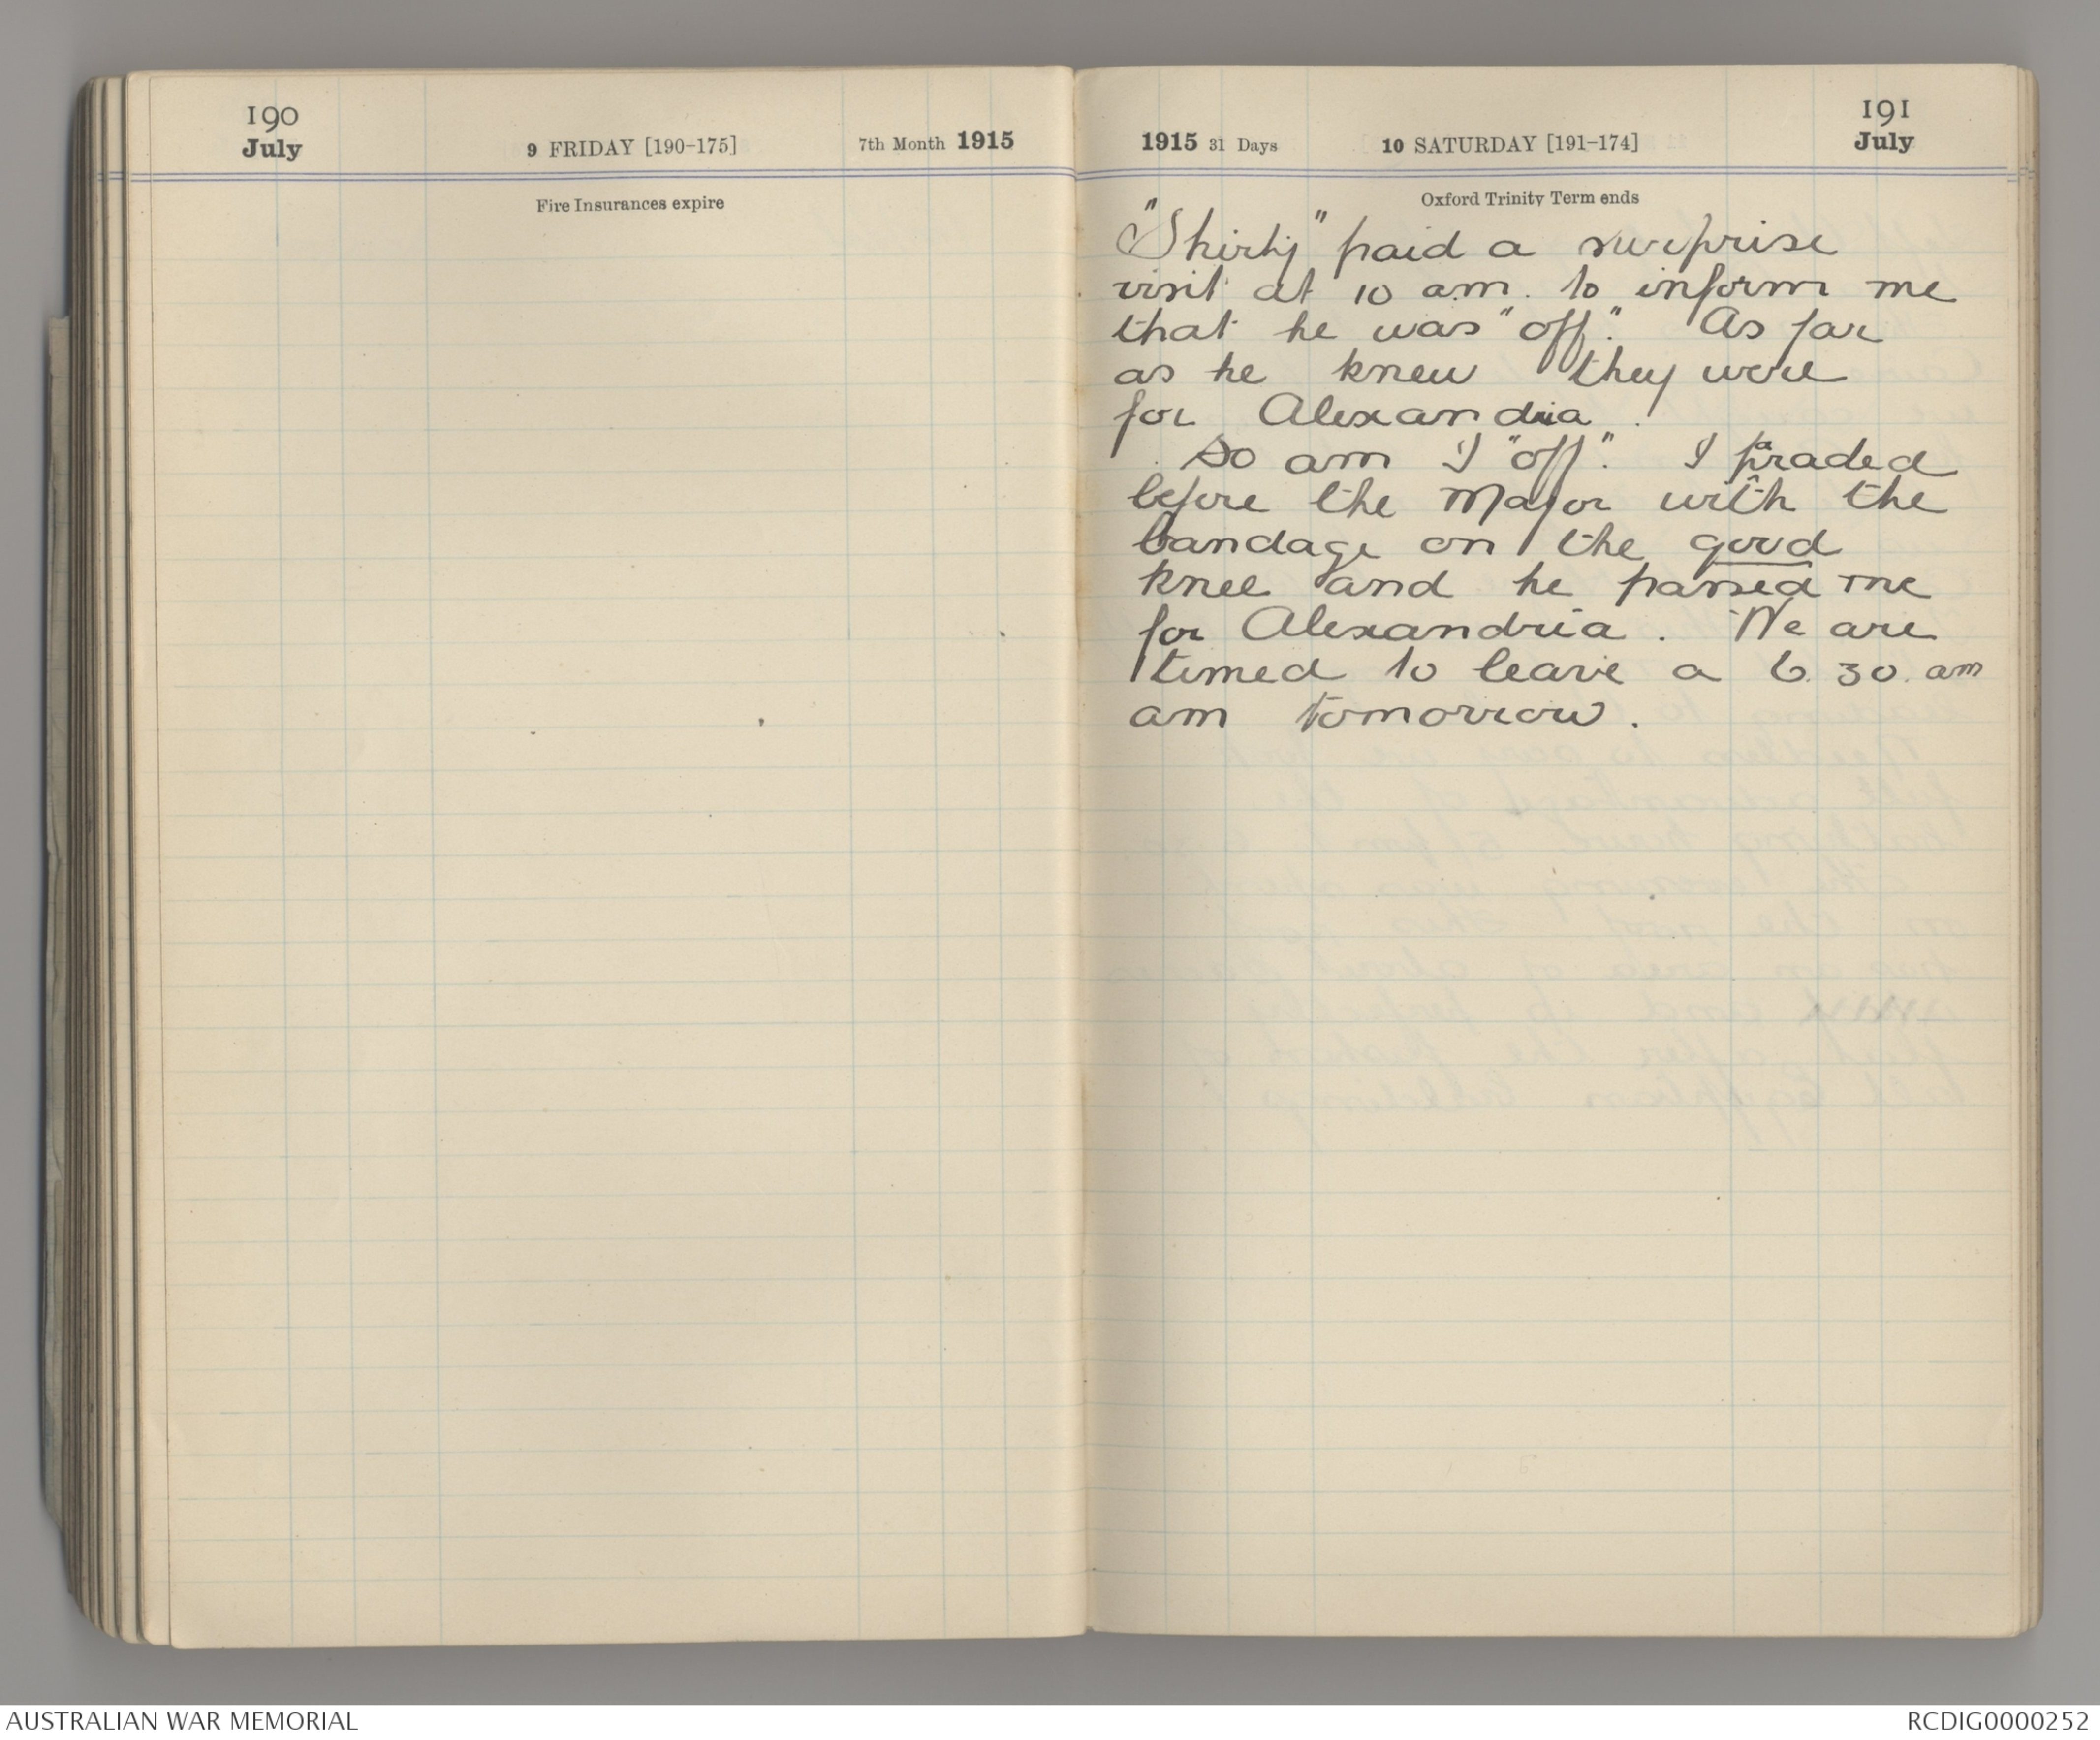 190
July
9 FRIDAY [190-175]
7th Month 1915
Fire Insurances expire
191
July
1915 31 Days
10 SATURDAY [191-174]
Oxford Trinity Term ends
"Shirty" paid a surprise
visit at 10 am. to inform me
that he was "off". As far
as he knew they were
for Alexandria.
So am I "off". I paraded
before the Major with the
bandage on the good
knee and he passed me
for Alexandria. We are
timed to leave a 6.30. am
am tomorrow.
AUSTRALIAN WAR MEMORIAL
RCDIG0000252